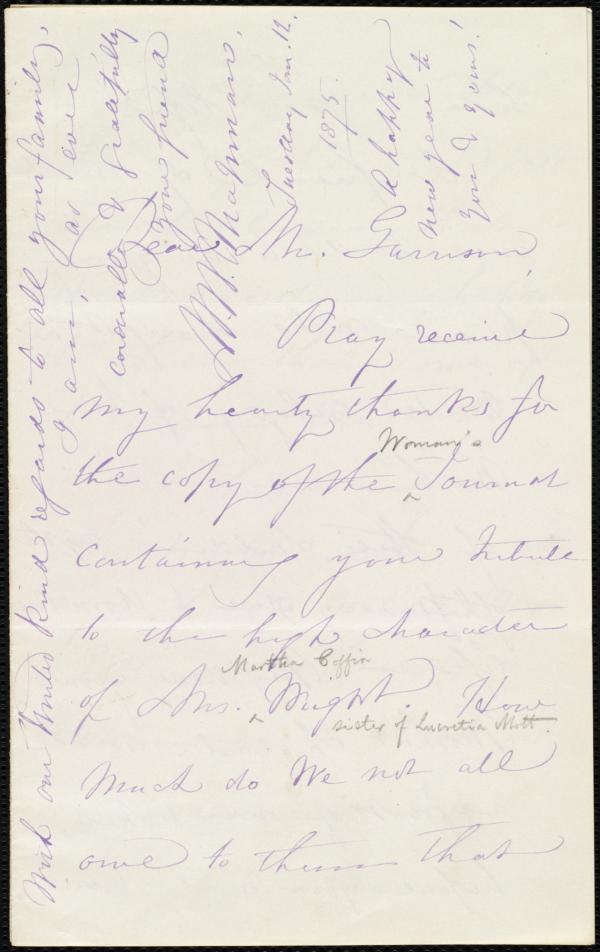 Dear Mr. Garrison,
Pray receive
my hearty thanks for
the copy of the ^ Woman's Journal
containing your tribute
to the high character
of Mrs. ^ Martha Coffin Wright. How
sister of Lucretia Mott.
much do we not all
owe to them that
With our united kind regards to all your family,
I am, as ever
cordially & gratefully
your friend
W. Chapman.
Tuesday Jan. 12.
1875.
A happy
new year to
you & yours!